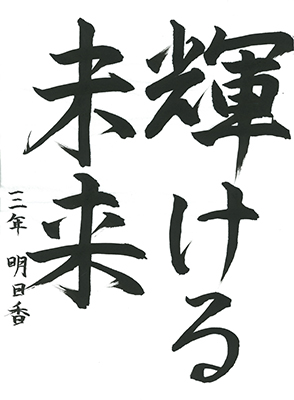 輝ける
未来
三年 明日香